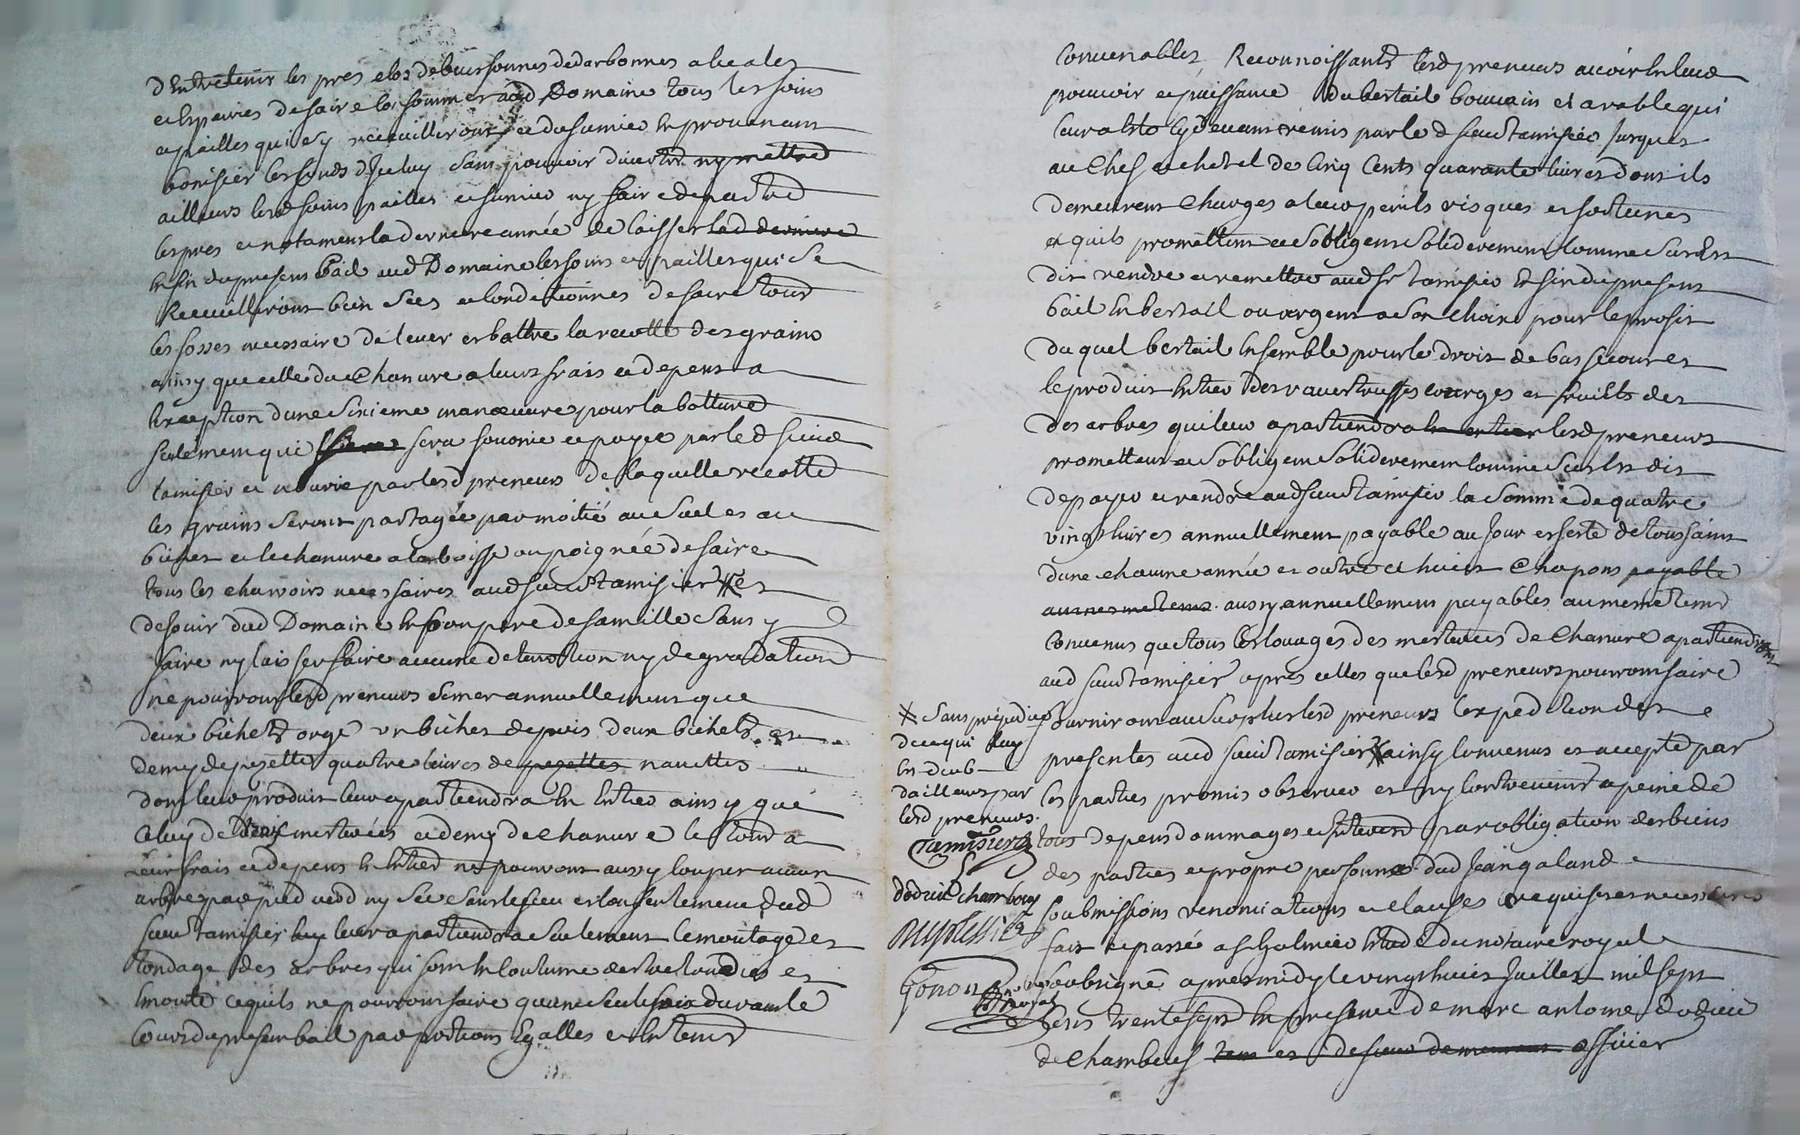 d'Entretenir les pres clos de buissonnes de
et hyvers de faire consommer aud Domaine tous les foins
et pailles qui s'y recueilleront et du fumier en provenant
bonifier les fonds d'Iceluy sans pouvoir divertir ny mettre
ailleurs lesd foins pailles et fumier ny faire
les pres et notament la derniere année de laisser lad derniere
en fin du present bail aud Domaine les foins et pailles qui se
Recueilleront bien secs et conditionnes de faire tous
les fosses necessaire de lever et battre la recolte des grains
ainsy que celle du Chanvre a leurs frais et depens a
lexception dune sixieme manoeuvre pour la batture
seulement qui sera fournie et payee par led sieur
tamisier et nourie par lesd preneurs de laquelle recolte
les grains seront partagée par moitié au suel et au
bichet et le chanvre a la poignée de faire
tous les charrois necessaires aud sieur tamisier et
de jouir dud Domaine en bon pere de famille sans y
faire ny laisser faire aucune deterioration ny degradation
ne pourront lesd preneurs semer annuellement que
deux bichets orge un bichet de pois deux bichets et
demy de pezette quatre livres de pezettes navettes
dont leur produit leur apartiendra en Entier ainsy que
celuy de deux mesterées et demy de chanvre le tout a
Leur frais et depens en Entier ne pouvant aussy couper aucun
arbre par pied verd ny sec sans le sceu et consentement dud
sieur tamisier leur apartiendra seulement lemontage et
tondage des arbres qui sont en coutume destre tondus et
Emonté ce quils ne pourront faire quune seule fois durant le
Cours du present bail par portions Egalles et En tems
convenables Reconnoissants lesd preneurs avoir en leur
pouvoir et puissance du bestail bouvain et arable qui
leur a esté cy devant remis par led sieur tamisier jusques
au Chef et chetel de Cinq Cents quarante livres dont ils
demeurent Charges a leur perils risques et fortunes
et quils promettent et sobligent solidairement comme
dit rendre et remettre aud sr tamisier En fin du present
bail En bestail ou argent a son Choix pour le profit
du quel bestail Ensemble pour le droit de bas secour et
le produit Entier des raves truffes courges et fruits des
des arbres qui leur apartiendra en entier lesd preneurs
promettent et sobligent solidairement comme dit
de payer et rendre aud sieur tamisier la somme de quatre
vingt livres annuellement payable au jour et feste de toussaint
dune chacune année et outre ce huict Chapons payable
au mesme tems aussy annuellement payables au meme tems
Convenus que tous les louages des mesterées de Chanvre apartiendront
aud sieur tamisier apres celles que lesd preneurs pourront faire
fourniront au surplus lesd preneurs lexpedition des
presentes aud sieur tamisier ainsy convenus et accepté par
les parties promis observer et ny contrevenir a peine de
tous depens dommages et interest par obligation des biens
des parties et propre personne dud Jean galand
soubmissions renonciations et clauses requises et necessaires
fait et passé a St Galmier Etude du notaire royal
soubsigné apres midy le vingt huict Juillet mil sept
cens trente sept En presence de marc antoine dodieu
de Chambeuf officier
sans prejudice
de ce qui luy
en doib
dailleurs par
lesd preneurs.
Tamisier
Gonon
Nre royal